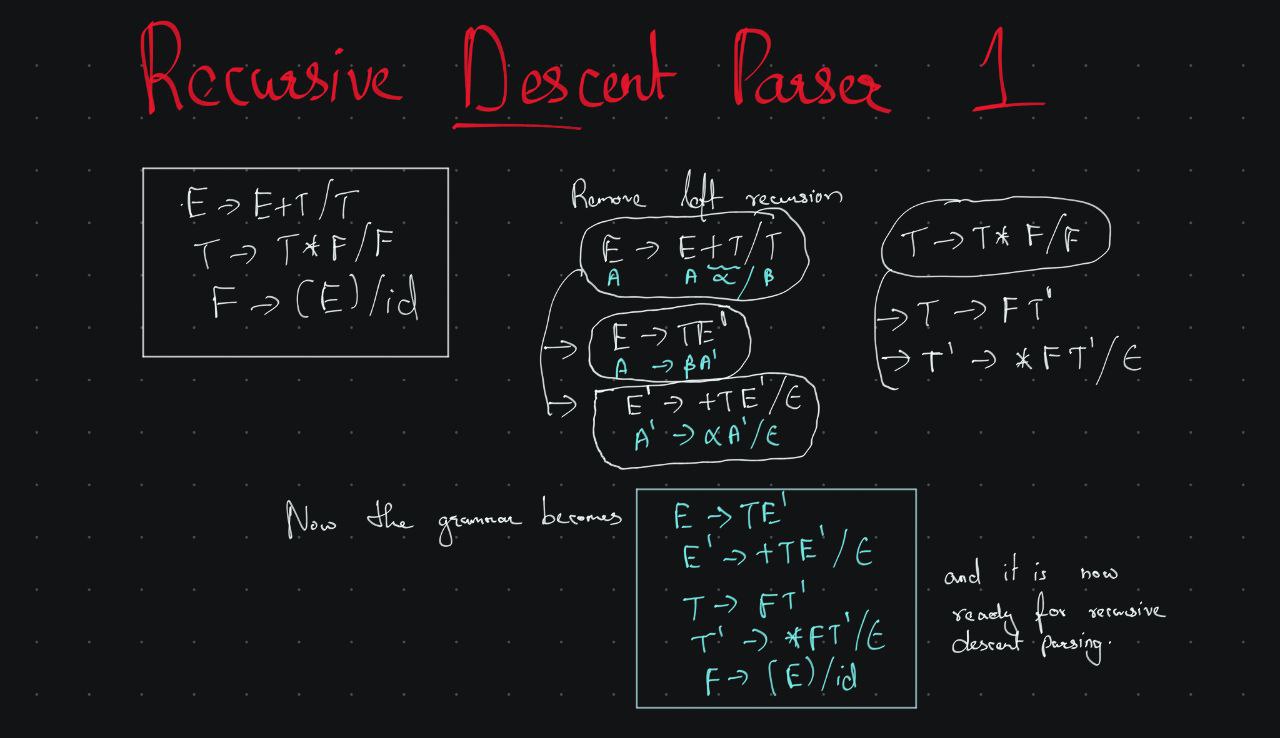 Recursive Descent Parser 1
E → E+T/T
T → T*F/F
F → (E)/id
Remove left recursion
E → E+T/T
A A α / β
E → TE'
A → βA'
E' → +TE'/ε
A' → αA'/ε
T → T*F/F
→ T → FT'
→ T' → *FT'/ε
Now the grammar becomes
E → TE'
E' → +TE'/ε
T → FT'
T' → *FT'/ε
F → (E)/id
and it is now
ready for recursive
descent parsing.